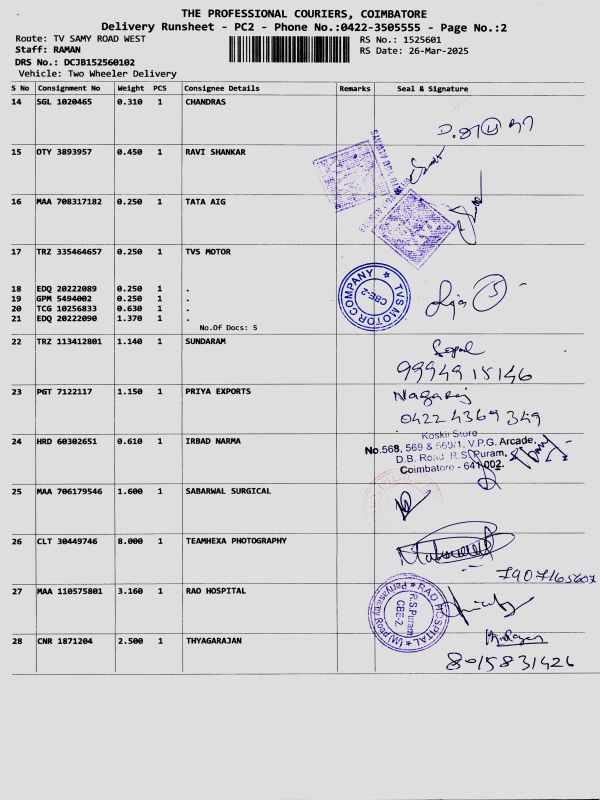 THE PROFESSIONAL COURIERS, COIMBATORE
Delivery Runsheet - PC2 - Phone No.:0422-3505555 - Page No.:2
Route: TV SAMY ROAD WEST RS No.: 1525601
Staff: RAMAN RS Date: 26-Mar-2025
DRS No.: DCJB152560102
Vehicle: Two Wheeler Delivery
S No Consignment No Weight PCS Consignee Details Remarks Seal & Signature
14 SGL 1020465 0.310 1 CHANDRAS
15 OTY 3893957 0.450 1 RAVI SHANKAR
16 MAA 708317182 0.250 1 TATA AIG
17 TRZ 335464657 0.250 1 TVS MOTOR
TVS MOTOR COMPANY
CBE-2
18 EDQ 20222089 0.250 1 .
19 GPM 5494002 0.250 1 .
20 TCG 10256833 0.630 1 .
21 EDQ 20222090 1.370 1 .
No.Of Docs: 5
22 TRZ 113412801 1.140 1 SUNDARAM
9994915146
23 PGT 7122117 1.150 1 PRIYA EXPORTS
Nagaraj
0422 4369 349
24 HRD 60302651 0.610 1 IRBAD NARMA
Koskii Store
No.568, 569 & 569/1, V.P.G. Arcade,
D.B. Road R.S. Puram,
Coimbatore - 641 002.
25 MAA 706179546 1.600 1 SABARWAL SURGICAL
26 CLT 30449746 8.000 1 TEAMHEXA PHOTOGRAPHY
7907165607
27 MAA 110575801 3.160 1 RAO HOSPITAL
RAO HOSPITAL
R.S.Puram
CBE-2.
28 CNR 1871204 2.500 1 THYAGARAJAN
8015831426